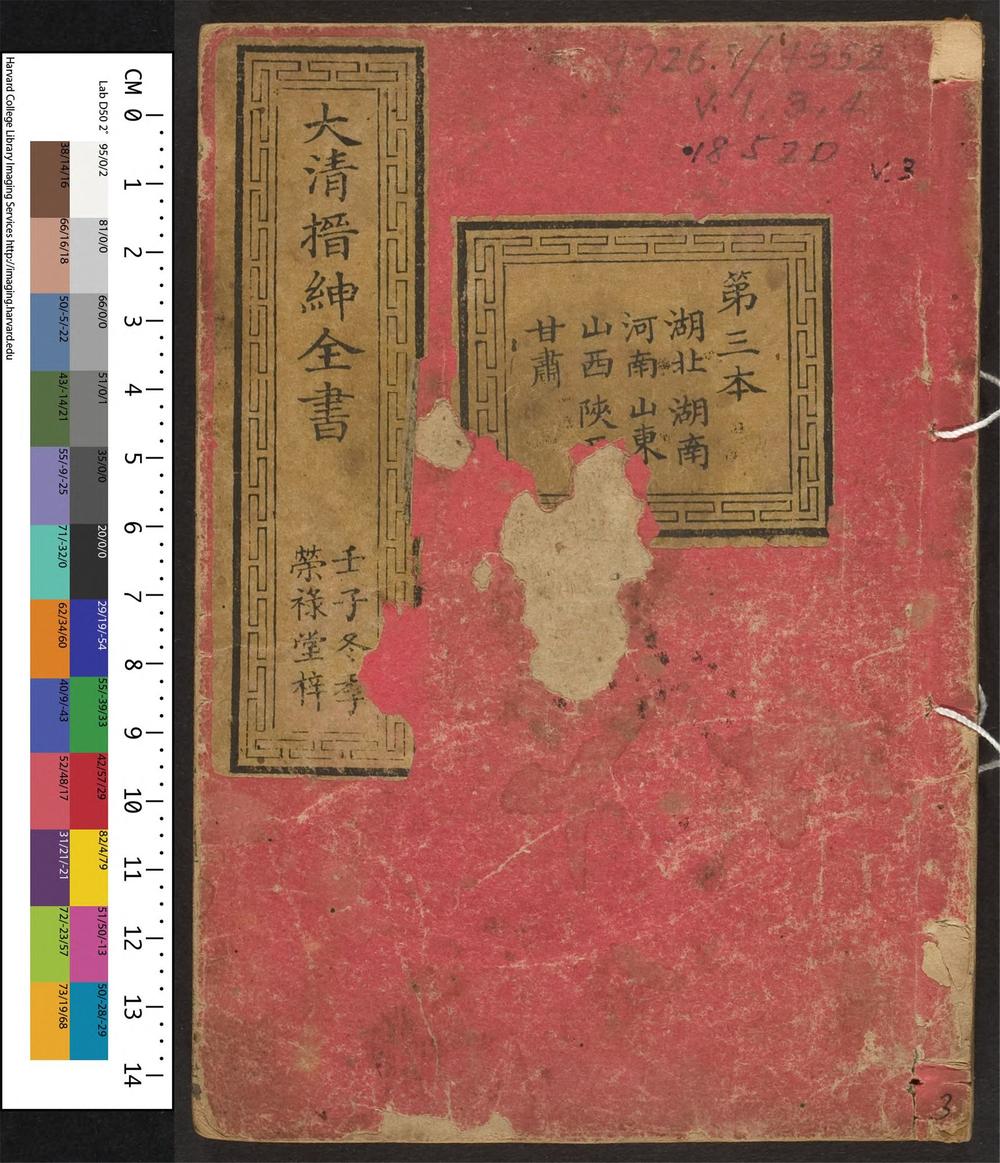 4726.9/4352
v. 1, 3, 4
1852D
v. 3
第三本
湖北 湖南
河南 山東
山西 陝
甘肅
大清搢紳全書
壬子冬季
榮祿堂梓
3
CM 0 1 2 3 4 5 6 7 8 9 10 11 12 13 14
Lab D50 2°
95/0/2
81/0/0
66/0/0
51/0/1
35/0/0
20/0/0
29/19/-54
55/-39/33
42/57/29
82/4/79
51/50/-13
50/-28/-29
38/14/16
66/16/18
50/-5/-22
43/-14/21
55/-9/-25
71/-32/0
62/34/60
40/9/-43
52/48/17
31/21/-21
72/-23/57
73/19/68
Harvard College Library Imaging Services http://imaging.harvard.edu